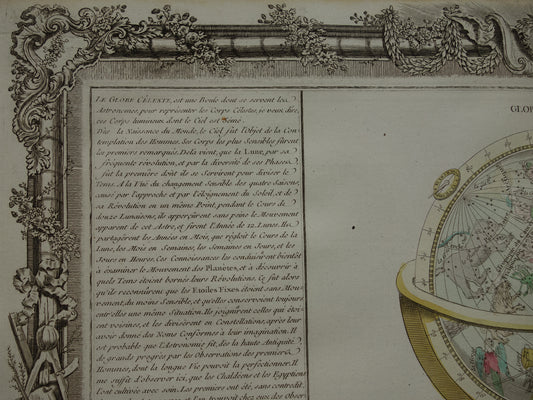 LE GLOBE CÉLESTE, est une Boule dont se servent les
Astronomes, pour représenter les Corps Célestes, je veux dire,
ces Corps lumineux dont le Ciel est Semé.
Dès la Naissance du Monde, le Ciel fut l'Objet de la Con-
templation des Hommes. Ses Corps les plus Sensibles furent
les premiers remarqués. De la vient, que la LUNE, par sa
fréquente révolution, et par la diversité de ses Phases
fut la première dont ils se servirent pour diviser le
Tems. A la Vûe du changement Sensible des quatre Saisons,
causé par l'approche et par l'éloignement du Soleil et de
sa Révolution en un même Point, pendant le Cours de
douze Lunaisons, ils apperçûrent sans peine le Mouvement
apparent de cet Astre, et firent l'Année de 12. Lunes. Ils
partagèrent les Années en Mois, que régloit le Cours de la
Lune, les Mois en Semaines, les Semaines en Jours, et les
Jours en Heures. Ces Connoissances les conduisirent bientôt
à éxaminer le Mouvement des Planetes, et a découvrir à
quels Tems étoient bornés leurs Révolutions. Ce fut alors
qu'ils reconnûrent que les Etoiles Fixes étoient sans Mou-
vement, du moins Sensible, et qu'elles conservoient toujours
entr'elles une même Situation. Ils joignirent celles qui étoi-
ent voisines, et les divisèrent en Constellations, après leur
avoir donné des Noms Conformes à leur imagination. Il
est probable que l'Astronomie fit, dès la haute Antiquité,
de grands progrès par les Observations des premiers
Hommes, dont la longue Vie pouvoit la perfectionner. Il
me suffit d'observer ici, que les Chaldéens et les Egyptiens
l'ont cultivée avec soin. Les premiers ont été, sans contredit,
et l'on trouvoit chez eux des Obser
GLO